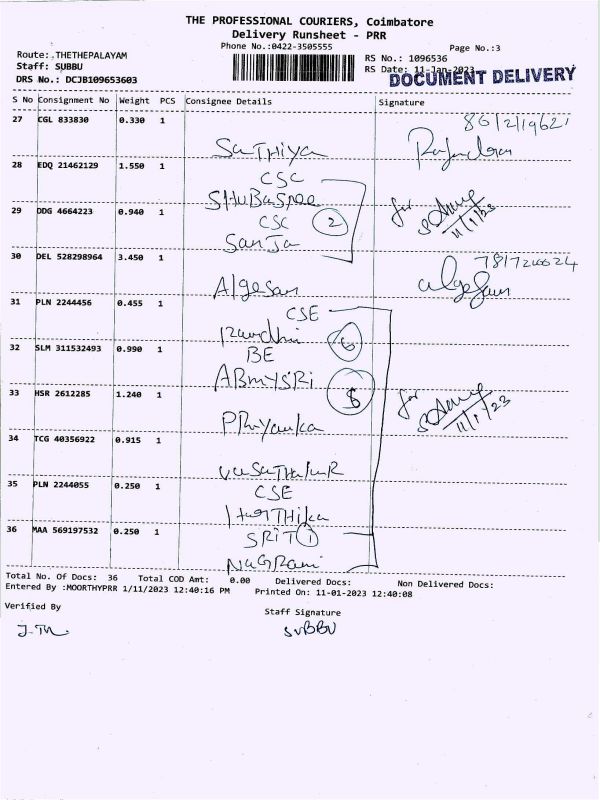 THE PROFESSIONAL COURIERS, Coimbatore
Delivery Runsheet - PRR
Phone No.:0422-3505555
Page No.:3
Route: .THETHEPALAYAM
RS No.: 1096536
Staff: SUBBU
RS Date: 11-Jan-2023
DRS No.: DCJB109653603
DOCUMENT DELIVERY
S No Consignment No Weight PCS Consignee Details Signature
27 CGL 833830 0.330 1
SaTHiya
28 EDQ 21462129 1.550 1
CSC
SHUBaSree
29 DDG 4664223 0.940 1
CSC 2
SanJa
for
11/1/23
30 DEL 528298964 3.450 1
Algesan
31 PLN 2244456 0.455 1
CSE
32 SLM 311532493 0.990 1
BE
ABmYSRi
33 HSR 2612285 1.240 1
PRiyanka
for
11/1/23
34 TCG 40356922 0.915 1
35 PLN 2244055 0.250 1
CSE
36 MAA 569197532 0.250 1
SRIT 1
NagRani
Total No. Of Docs: 36 Total COD Amt: 0.00 Delivered Docs: Non Delivered Docs:
Entered By :MOORTHYPRR 1/11/2023 12:40:16 PM Printed On: 11-01-2023 12:40:08
Verified By Staff Signature
SUBBU